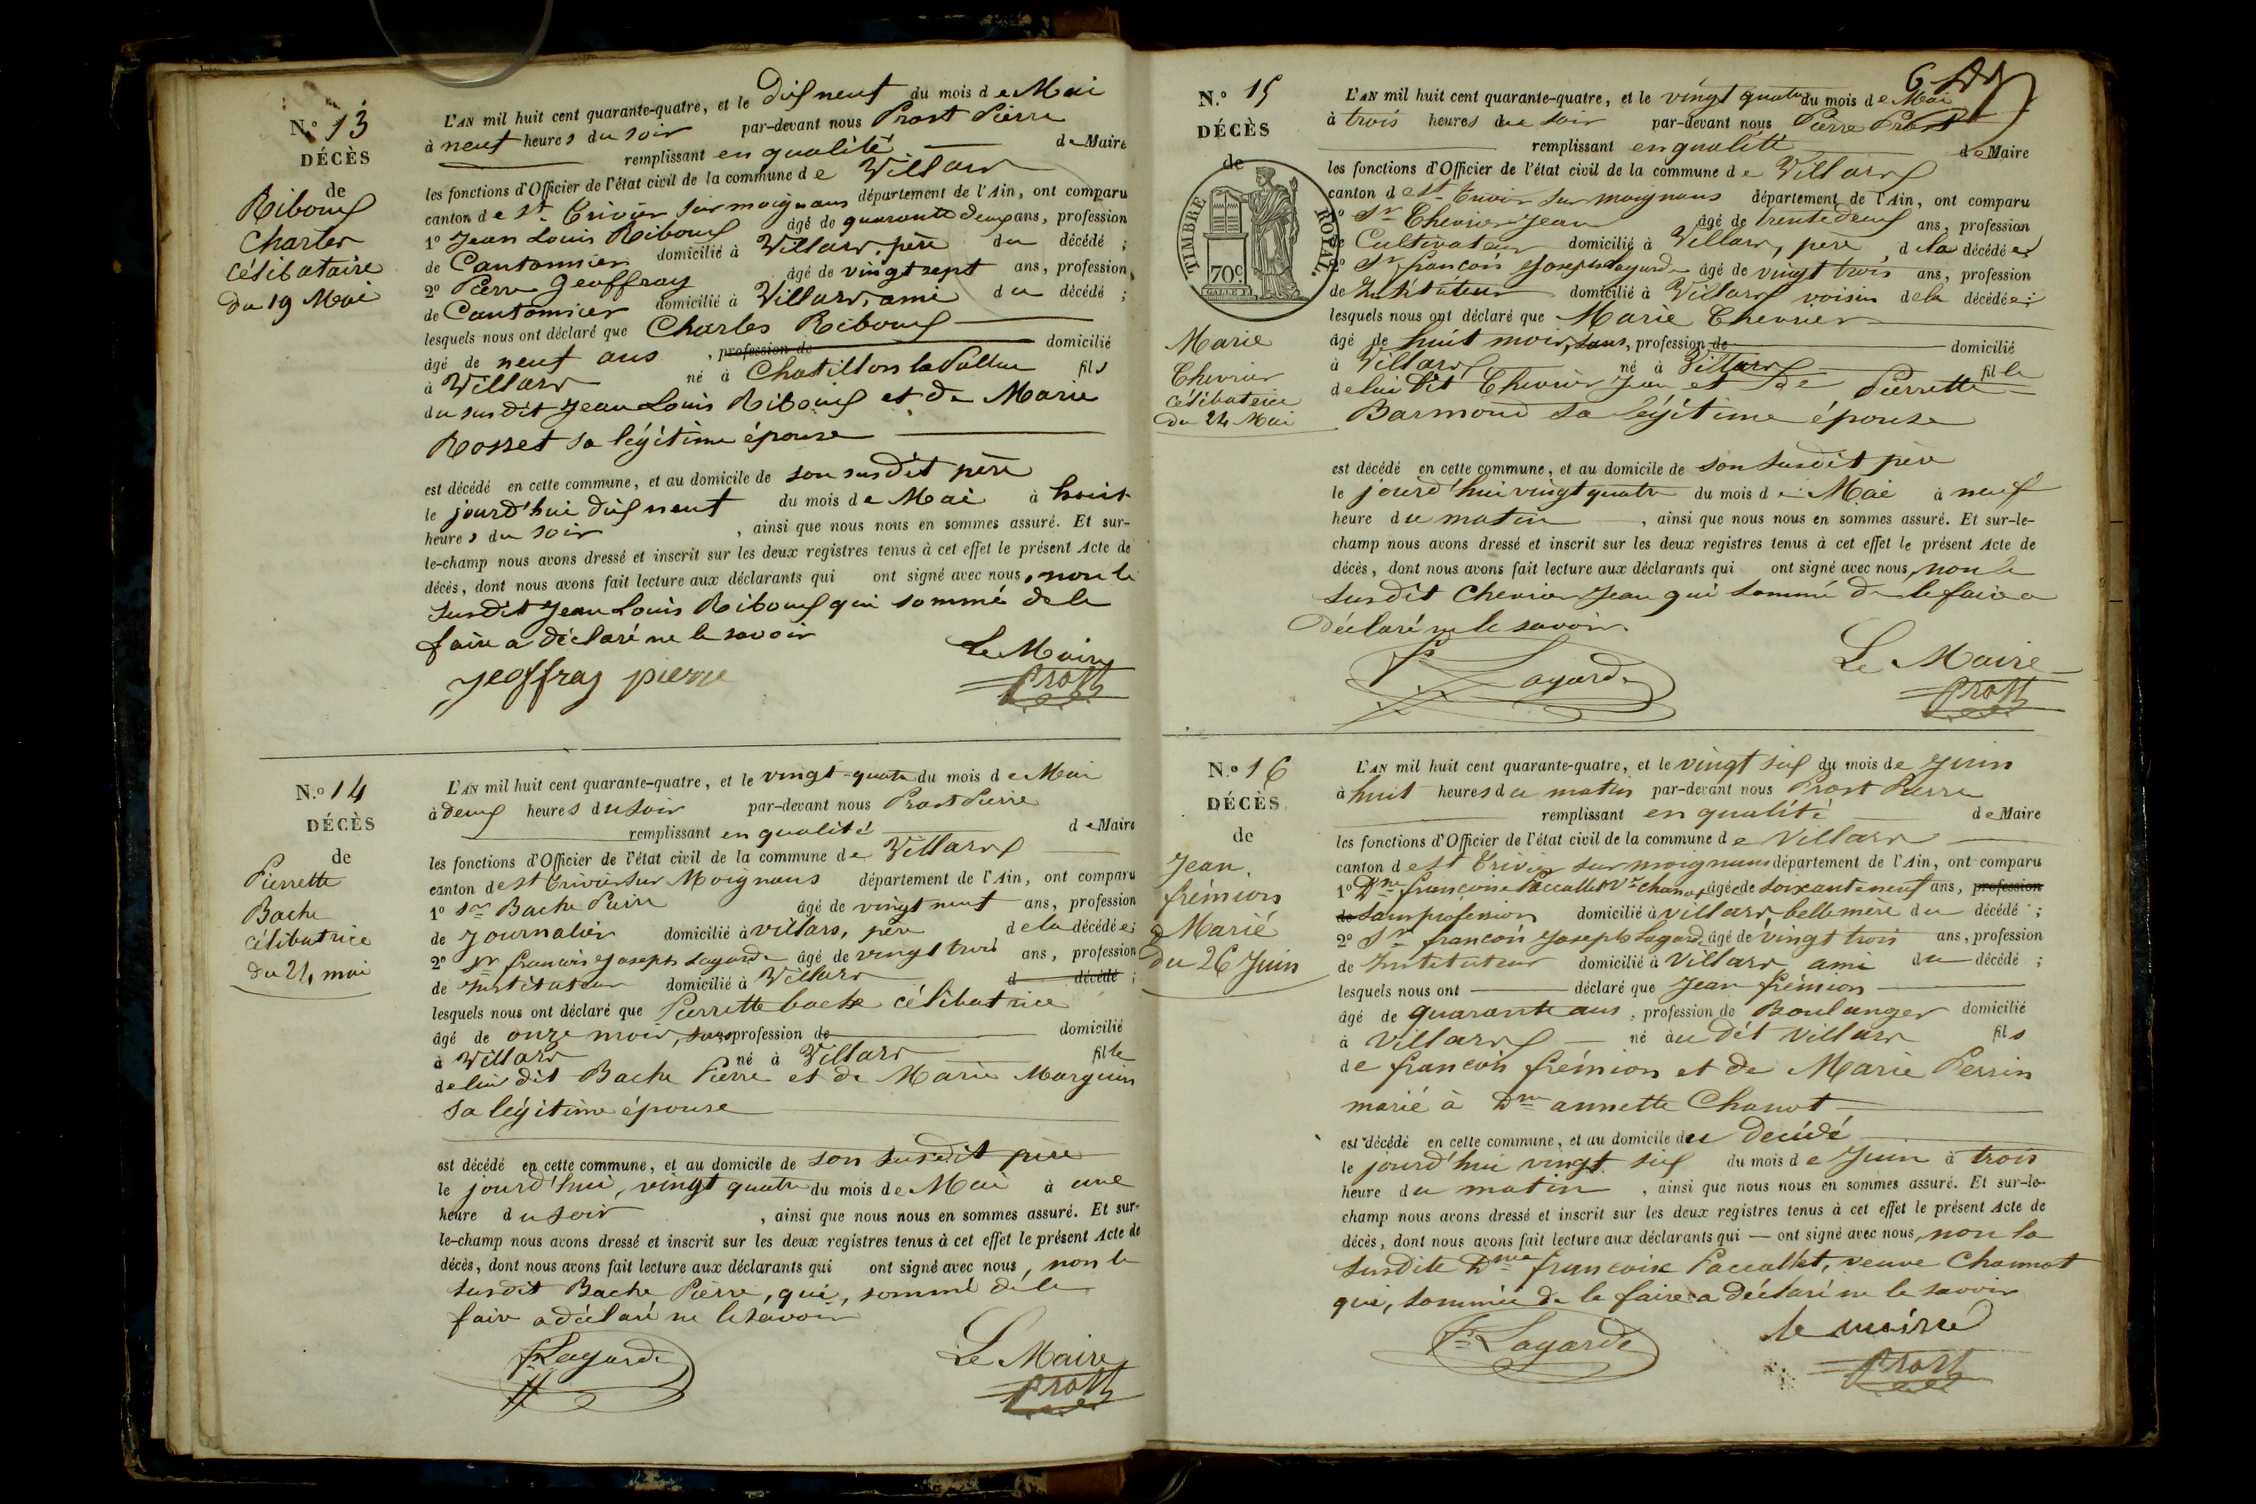 N.º 13
DÉCÈS
de
Riboux
Charles
célibataire
du 19 Mai
L'AN mil huit cent quarante-quatre, et le Dix neuf du mois de Mai
à neuf heures du soir par-devant nous Prost Pierre
remplissant en qualité de Maire
les fonctions d'Officier de l'état civil de la commune de Villars
canton de St. Trivier sur moignans département de l'Ain, ont comparu
1º Jean Louis Riboux âgé de quarante deux ans, profession
de Cantonnier domicilié à Villars, père du décédé ;
2º Pierre Geoffray âgé de vingt sept ans, profession
de Cantonnier domicilié à Villars, ami du décédé ;
lesquels nous ont déclaré que Charles Riboux
âgé de neuf ans , profession de domicilié
à Villars né à Chatillon la Pallue fils
du susdit Jean Louis Riboux et de Marie
Rosset sa légitime épouse
est décédé en cette commune, et au domicile de son susdit père
le jourd'hui dix neuf du mois de Mai à huit
heures du soir , ainsi que nous nous en sommes assuré. Et sur-
le-champ nous avons dressé et inscrit sur les deux registres tenus à cet effet le présent Acte de
décès, dont nous avons fait lecture aux déclarants qui ont signé avec nous, non le
susdit Jean Louis Riboux qui sommé de le
faire a déclaré ne le savoir
Le Maire
Jeoffray pierre
Prost
N.º 14
DÉCÈS
de
Pierrette
Bache
célibatrice
du 24 mai
L'AN mil huit cent quarante-quatre, et le vingt-quatre du mois de Mai
à deux heures du soir par-devant nous Prost Pierre
remplissant en qualité de Maire
les fonctions d'Officier de l'état civil de la commune de Villars
canton de St Trivier sur Moignans département de l'Ain, ont comparu
1º Sr Bache Pierre âgé de vingt neuf ans, profession
de Journalier domicilié à villars, père de la décédée;
2º Sr francois Joseph Lagarde âgé de vingt trois ans, profession
de Instituteur domicilié à Villars d décédé ;
lesquels nous ont déclaré que Pierrette bache célibatrice
âgé de onze mois, sans profession de domicilié
à Villars né à Villars fille
de lui dit Bache Pierre et de Marie Marguin
sa légitime épouse
est décédé en cette commune, et au domicile de son susdit père
le jourd'hui, vingt quatre du mois de Mai à une
heure du soir , ainsi que nous nous en sommes assuré. Et sur-
le-champ nous avons dressé et inscrit sur les deux registres tenus à cet effet le présent Acte de
décès, dont nous avons fait lecture aux déclarants qui ont signé avec nous, non le
susdit Bache Pierre, qui, sommé de le
faire a déclaré ne le savoir
Le Maire
fs Lagarde
Prost
N.º 15
DÉCÈS
de
TIMBRE ROYAL.
70c
Marie
Chevrier
célibatrice
du 24 Mai
6
L'AN mil huit cent quarante-quatre, et le vingt quatre du mois de Mai
à trois heures du soir par-devant nous Pierre Prost
remplissant en qualité de Maire
les fonctions d'Officier de l'état civil de la commune de Villars
canton de St. Trivier sur moignans département de l'Ain, ont comparu
1º Sr Chevrier Jean âgé de trente deux ans, profession
de Cultivateur domicilié à Villars, père, de la décédée;
2º Sr francois Joseph Lagarde âgé de vingt trois ans, profession
de Instituteur domicilié à Villars voisin de la décédée;
lesquels nous ont déclaré que Marie Chevrier
âgé de huit mois, sans, profession de domicilié
à Villars né à Villars fille
de lui dit Chevrier Jean et de Pierrette
Barmond sa légitime épouse
est décédé en cette commune, et au domicile de son susdit père
le jourd'hui vingt quatre du mois de Mai à neuf
heure du matin , ainsi que nous nous en sommes assuré. Et sur-le-
champ nous avons dressé et inscrit sur les deux registres tenus à cet effet le présent Acte de
décès, dont nous avons fait lecture aux déclarants qui ont signé avec nous, non le
susdit Chevrier Jean qui sommé de le faire a
déclaré ne le savoir
Le Maire
fs Lagarde
Prost
N.º 16
DÉCÈS
de
Jean
frémion
Marié
du 26 Juin
L'AN mil huit cent quarante-quatre, et le vingt six du mois de Juin
à huit heures du matin par-devant nous Prost Pierre
remplissant en qualité de Maire
les fonctions d'Officier de l'état civil de la commune de Villars
canton de St Trivier sur moignans département de l'Ain, ont comparu
1º Dme francoise Paccallet Ve chanot âgé de soixante neuf ans, profession
de sans profession domicilié à villars, belle mère du décédé ;
2º Sr francois Joseph Lagarde âgé de vingt trois ans, profession
de Instituteur domicilié à Villars ami du décédé ;
lesquels nous ont déclaré que Jean frémion
âgé de quarante ans, profession de Boulanger domicilié
à Villars né au dit Villars fils
de francois frémion et de Marie Perrin
marié à Dme annette Chanot
est décédé en cette commune, et au domicile du décédé
le jourd'hui vingt six du mois de Juin à trois
heure du matin , ainsi que nous nous en sommes assuré. Et sur-le-
champ nous avons dressé et inscrit sur les deux registres tenus à cet effet le présent Acte de
décès, dont nous avons fait lecture aux déclarants qui — ont signé avec nous, non la
susdite Dme francoise Paccallet, veuve Channot
qui, sommée de le faire a déclaré ne le savoir
le maire
fs Lagarde
Prost